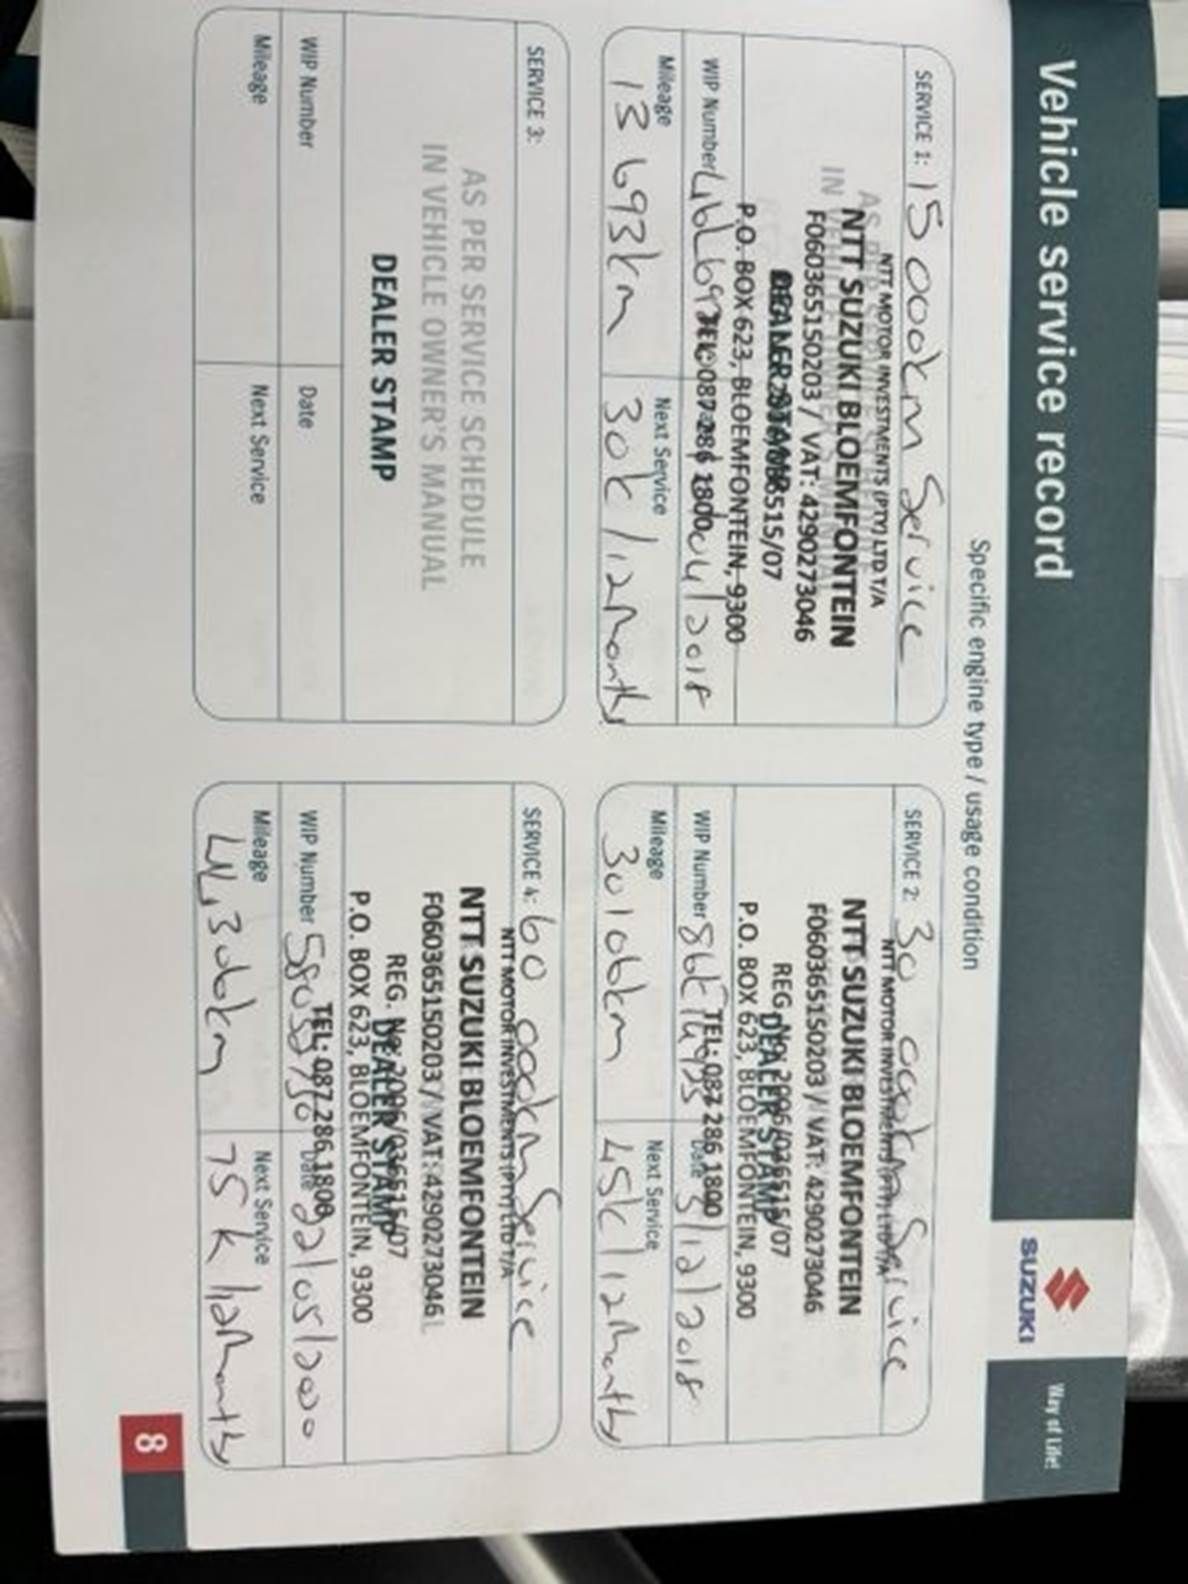 Vehicle service record
SUZUKI
Way of Life!
Specific engine type / usage condition
SERVICE 1: 15 000km Service
NTT MOTOR INVESTMENTS (PTY) LTD T/A
AS
NTT SUZUKI BLOEMFONTEIN
IN
F060365150203 / VAT: 4290273046
DEALER STAMP
P.O. BOX 623, BLOEMFONTEIN, 9300
WIP Number
TEL: 087 286 1800
04/2018
Mileage
13 693km
Next Service
30k/12Months
SERVICE 2: 30 000km Service
NTT MOTOR INVESTMENTS (PTY) LTD T/A
NTT SUZUKI BLOEMFONTEIN
F060365150203 / VAT: 4290273046
REG. No. 2006/036515/07
DEALER STAMP
P.O. BOX 623, BLOEMFONTEIN, 9300
TEL: 087 286 1800
WIP Number
Date 5/12/2018
Mileage
30106km
Next Service
45k/12Months
SERVICE 3:
AS PER SERVICE SCHEDULE
IN VEHICLE OWNER'S MANUAL
DEALER STAMP
WIP Number
Date
Mileage
Next Service
SERVICE 4: 60 000km Service
NTT MOTOR INVESTMENTS (PTY) LTD T/A
NTT SUZUKI BLOEMFONTEIN
F060365150203 / VAT: 4290273046
REG. No. 2006/036515/07
DEALER STAMP
P.O. BOX 623, BLOEMFONTEIN, 9300
TEL: 087 286 1800
WIP Number
Date 22/05/2020
Mileage
Next Service
75k/12Months
8